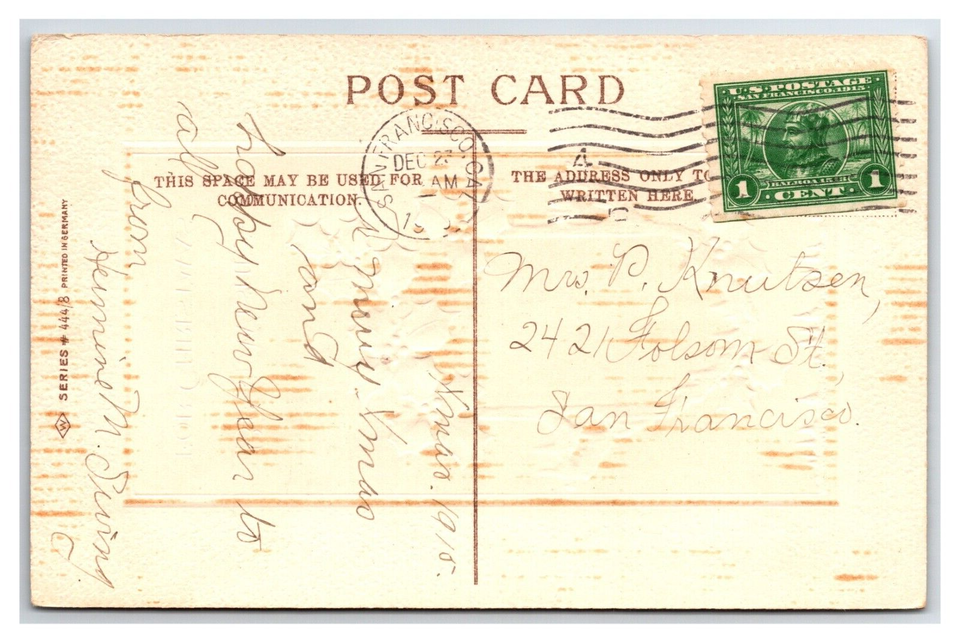 POST CARD
THIS SPACE MAY BE USED FOR
COMMUNICATION.
THE ADDRESS ONLY TO
WRITTEN HERE.
SAN FRANCISCO, CAL
DEC 2
AM
U.S. POSTAGE
SAN FRANCISCO, 1915
BALBOA 1513
1 CENT 1
Mrs. P. Knutsen,
2421 Folsom St.,
San Francisco.
Xmas. 1915.
A Merry Xmas
and
Happy New Year to
all
from
Hermine M.
SERIES # 444/8 PRINTED IN GERMANY
W